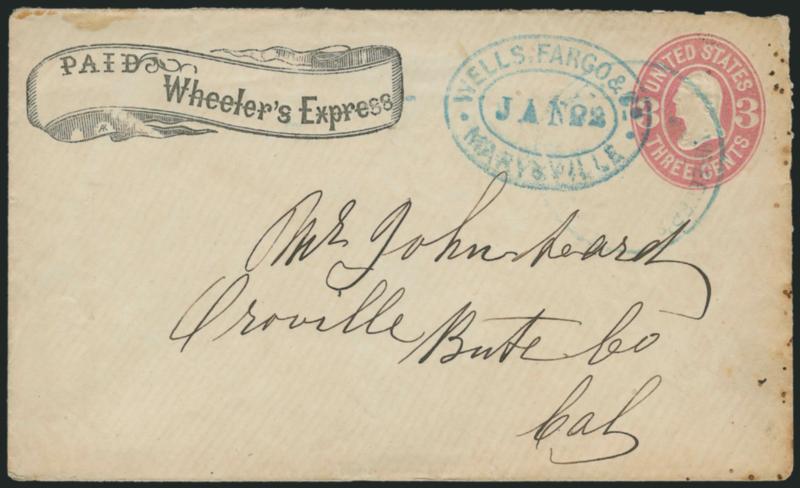 PAID
Wheeler's Express
WELLS, FARGO &
JAN 22
MARYSVILLE
UNITED STATES
3 3
THREE CENTS
Mr John Heard
Oroville Bute Co
Cal